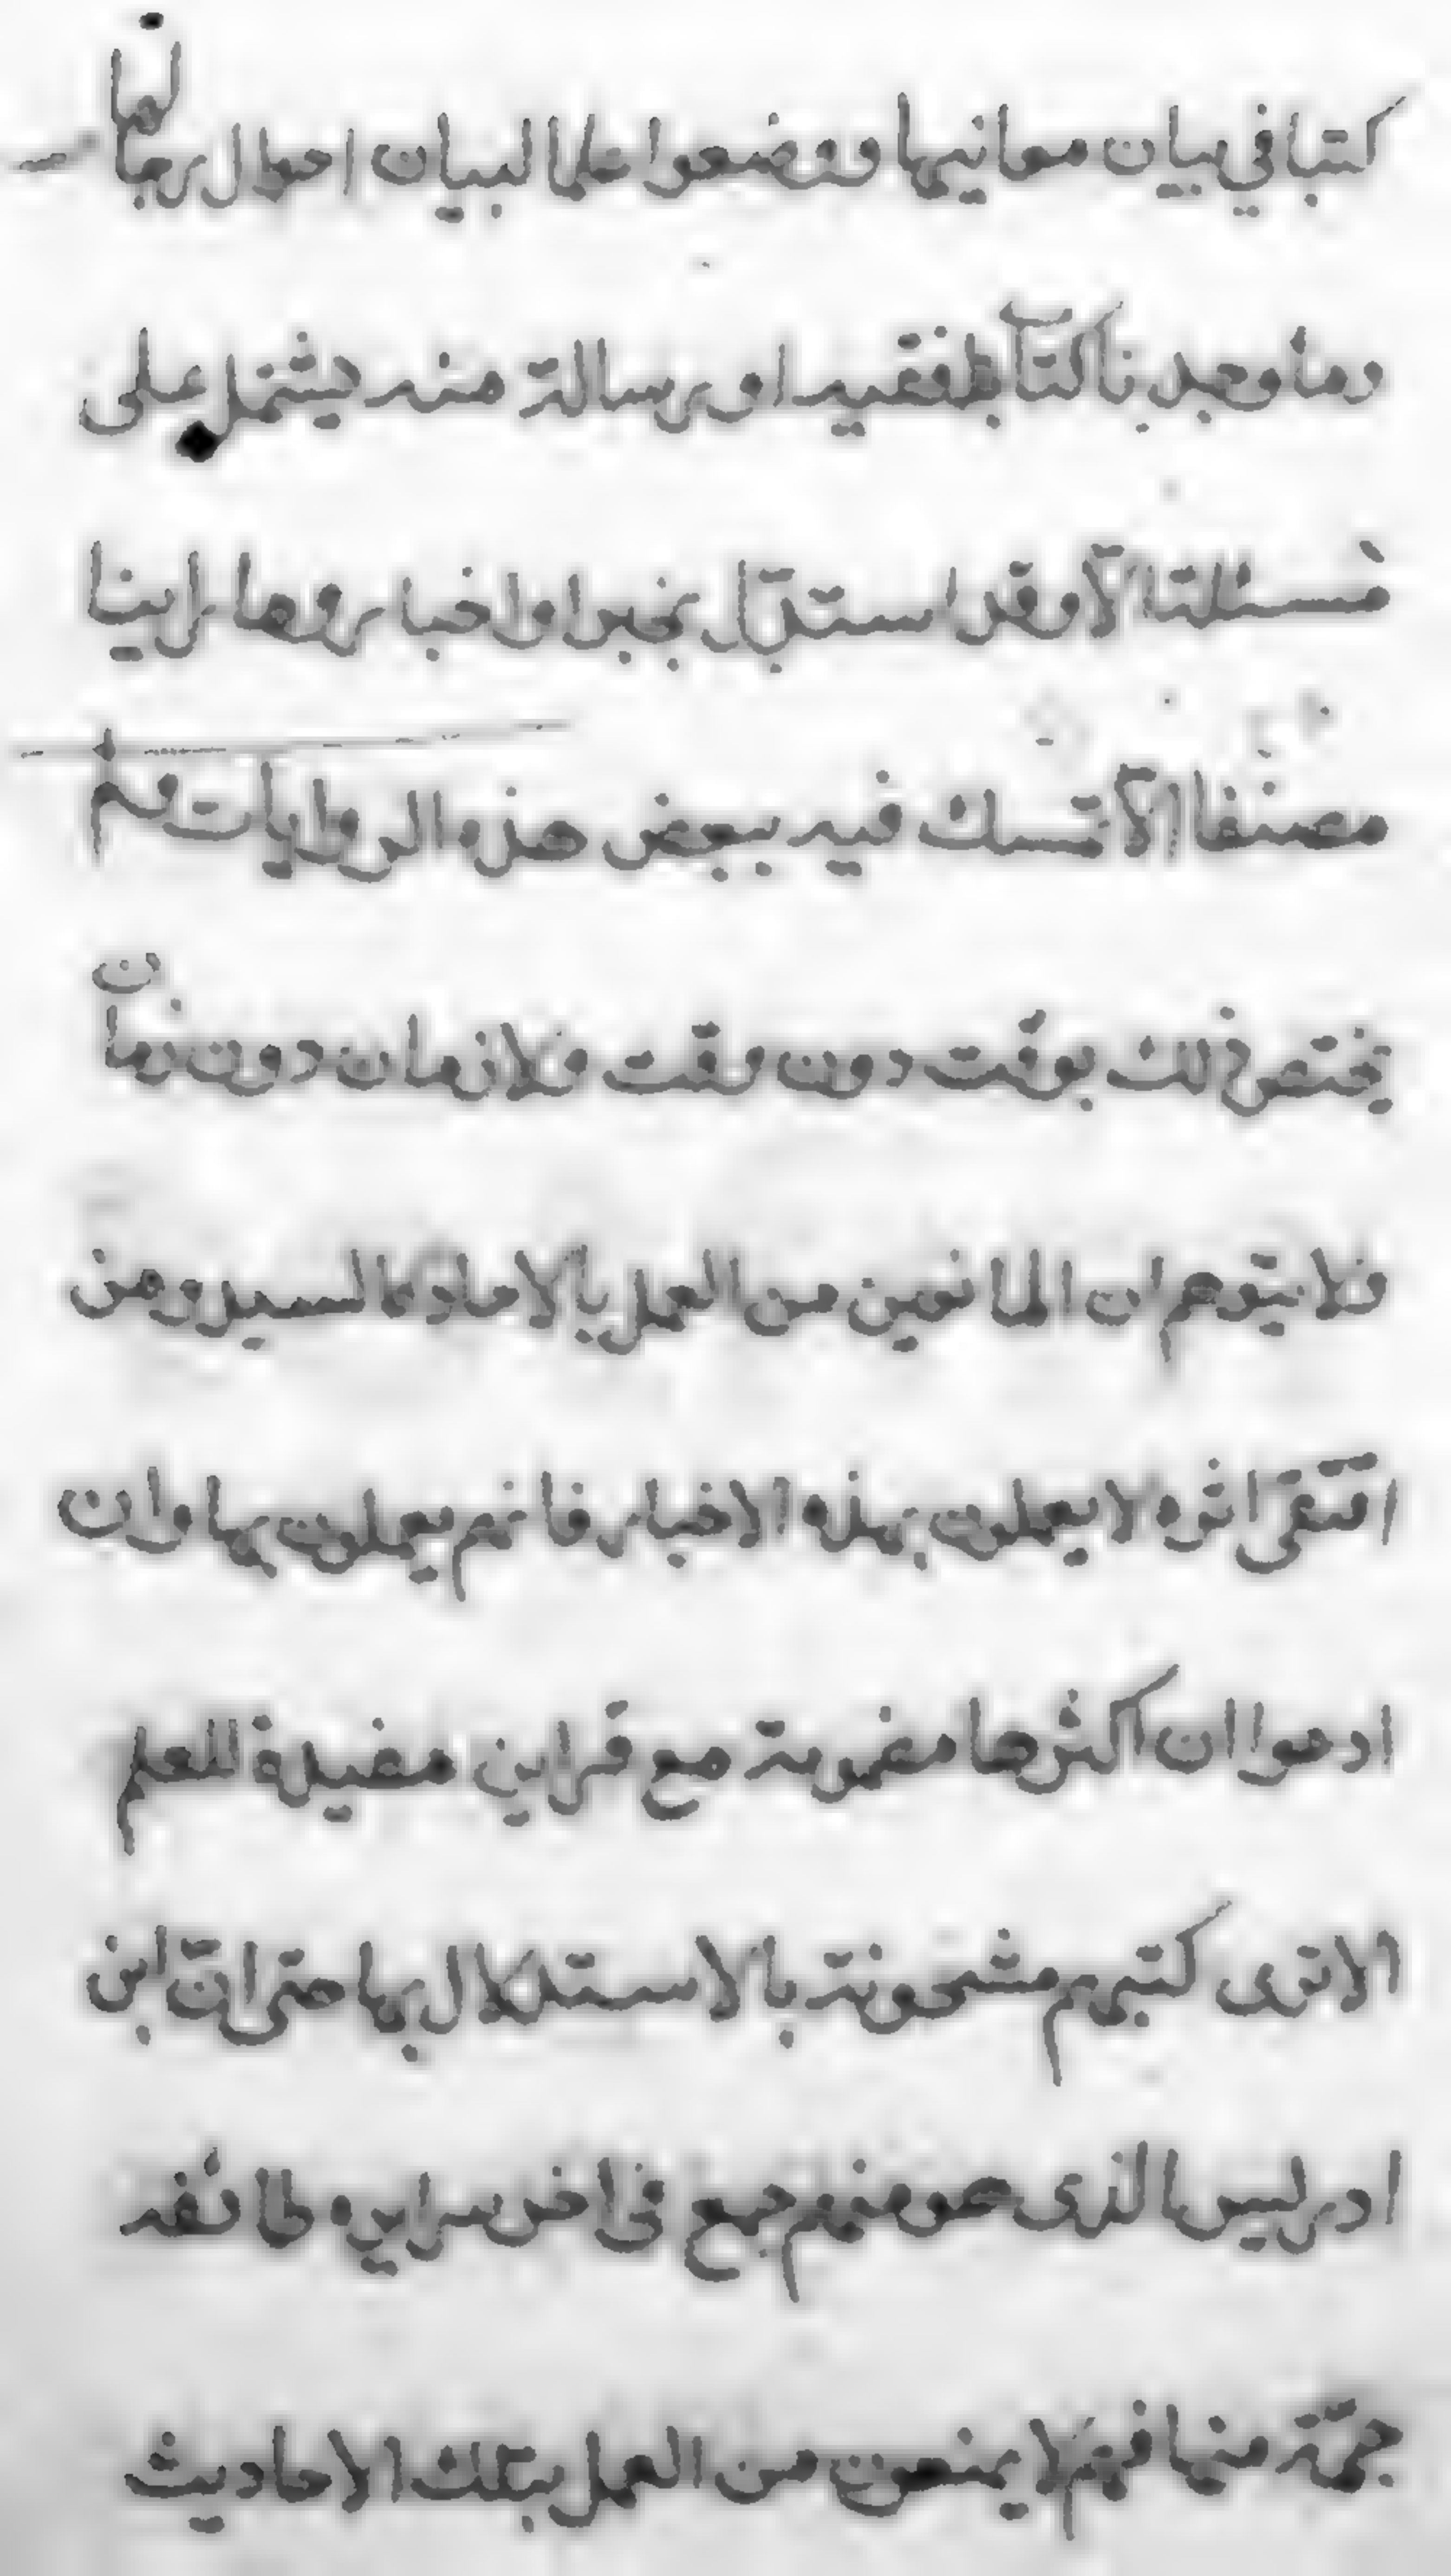 كتبا في بيان معانيها ووضعوا علما لبيان احوال رجالها
وما وجدنا كتابا لفقيه او رسالة منه يشتمل على
مسئلة الا وقد استدل بخبر او اخبار وما راينا
مصنفا الا تمسك فيه ببعض هذه الروايات ولم
يختص ذلك بوقت دون وقت فلا زمان دون زمان
فلا يتوهم ان المانعين من العمل بالاحاد كالسيد ومن
اقتفى اثره لا يعملون بهذه الاخبار فانهم يعملون بها وان
ادعوا ان اكثرها مقرونة مع قراين مفيدة للعلم
الا ترى كتبهم مشحونة بالاستدلال بها حتى ان ابن
ادريس الذى هو منهم جمع فى اخر سرايره طائفه
جمة منها فهم لا يمنعون من العمل بتلك الاحاديث